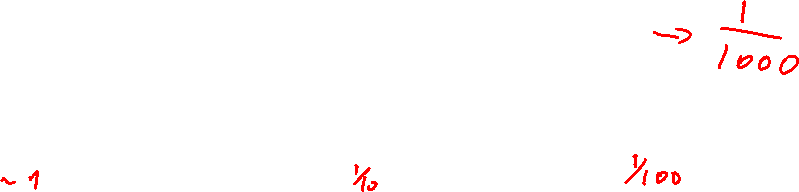 → 1/1000
~1 1/10 1/100